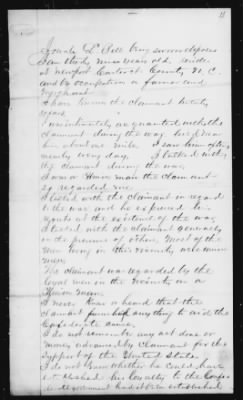 11
Josiah L. Bell being sworn deposes
I am thirty nine years old, reside
at Newport Carteret County N.C.
and by occupation a farmer and
I have known the claimant twenty
years.
I was intimately acquainted with the
claimant during the war, lived near
him about one mile. I saw him often
nearly every day. I talked with
the claimant during the war.
I was a Union man the claimant
so regarded me.
I talked with the claimant in regard
to the war and he expressed
at the existence of the war
I talked with the claimant generally
in the presence of others, most of the
men living in that vicinity who were union
men.
The claimant was regarded by the
loyal men in the vicinity as a
Union man.
I never knew or heard that the
claimant furnished anything to aid the
Confederate cause.
I do not remember any act done or
money advanced by claimant for the
support of the United States.
I do not know whether he could have
established his loyalty to the Confed
Government had it been established